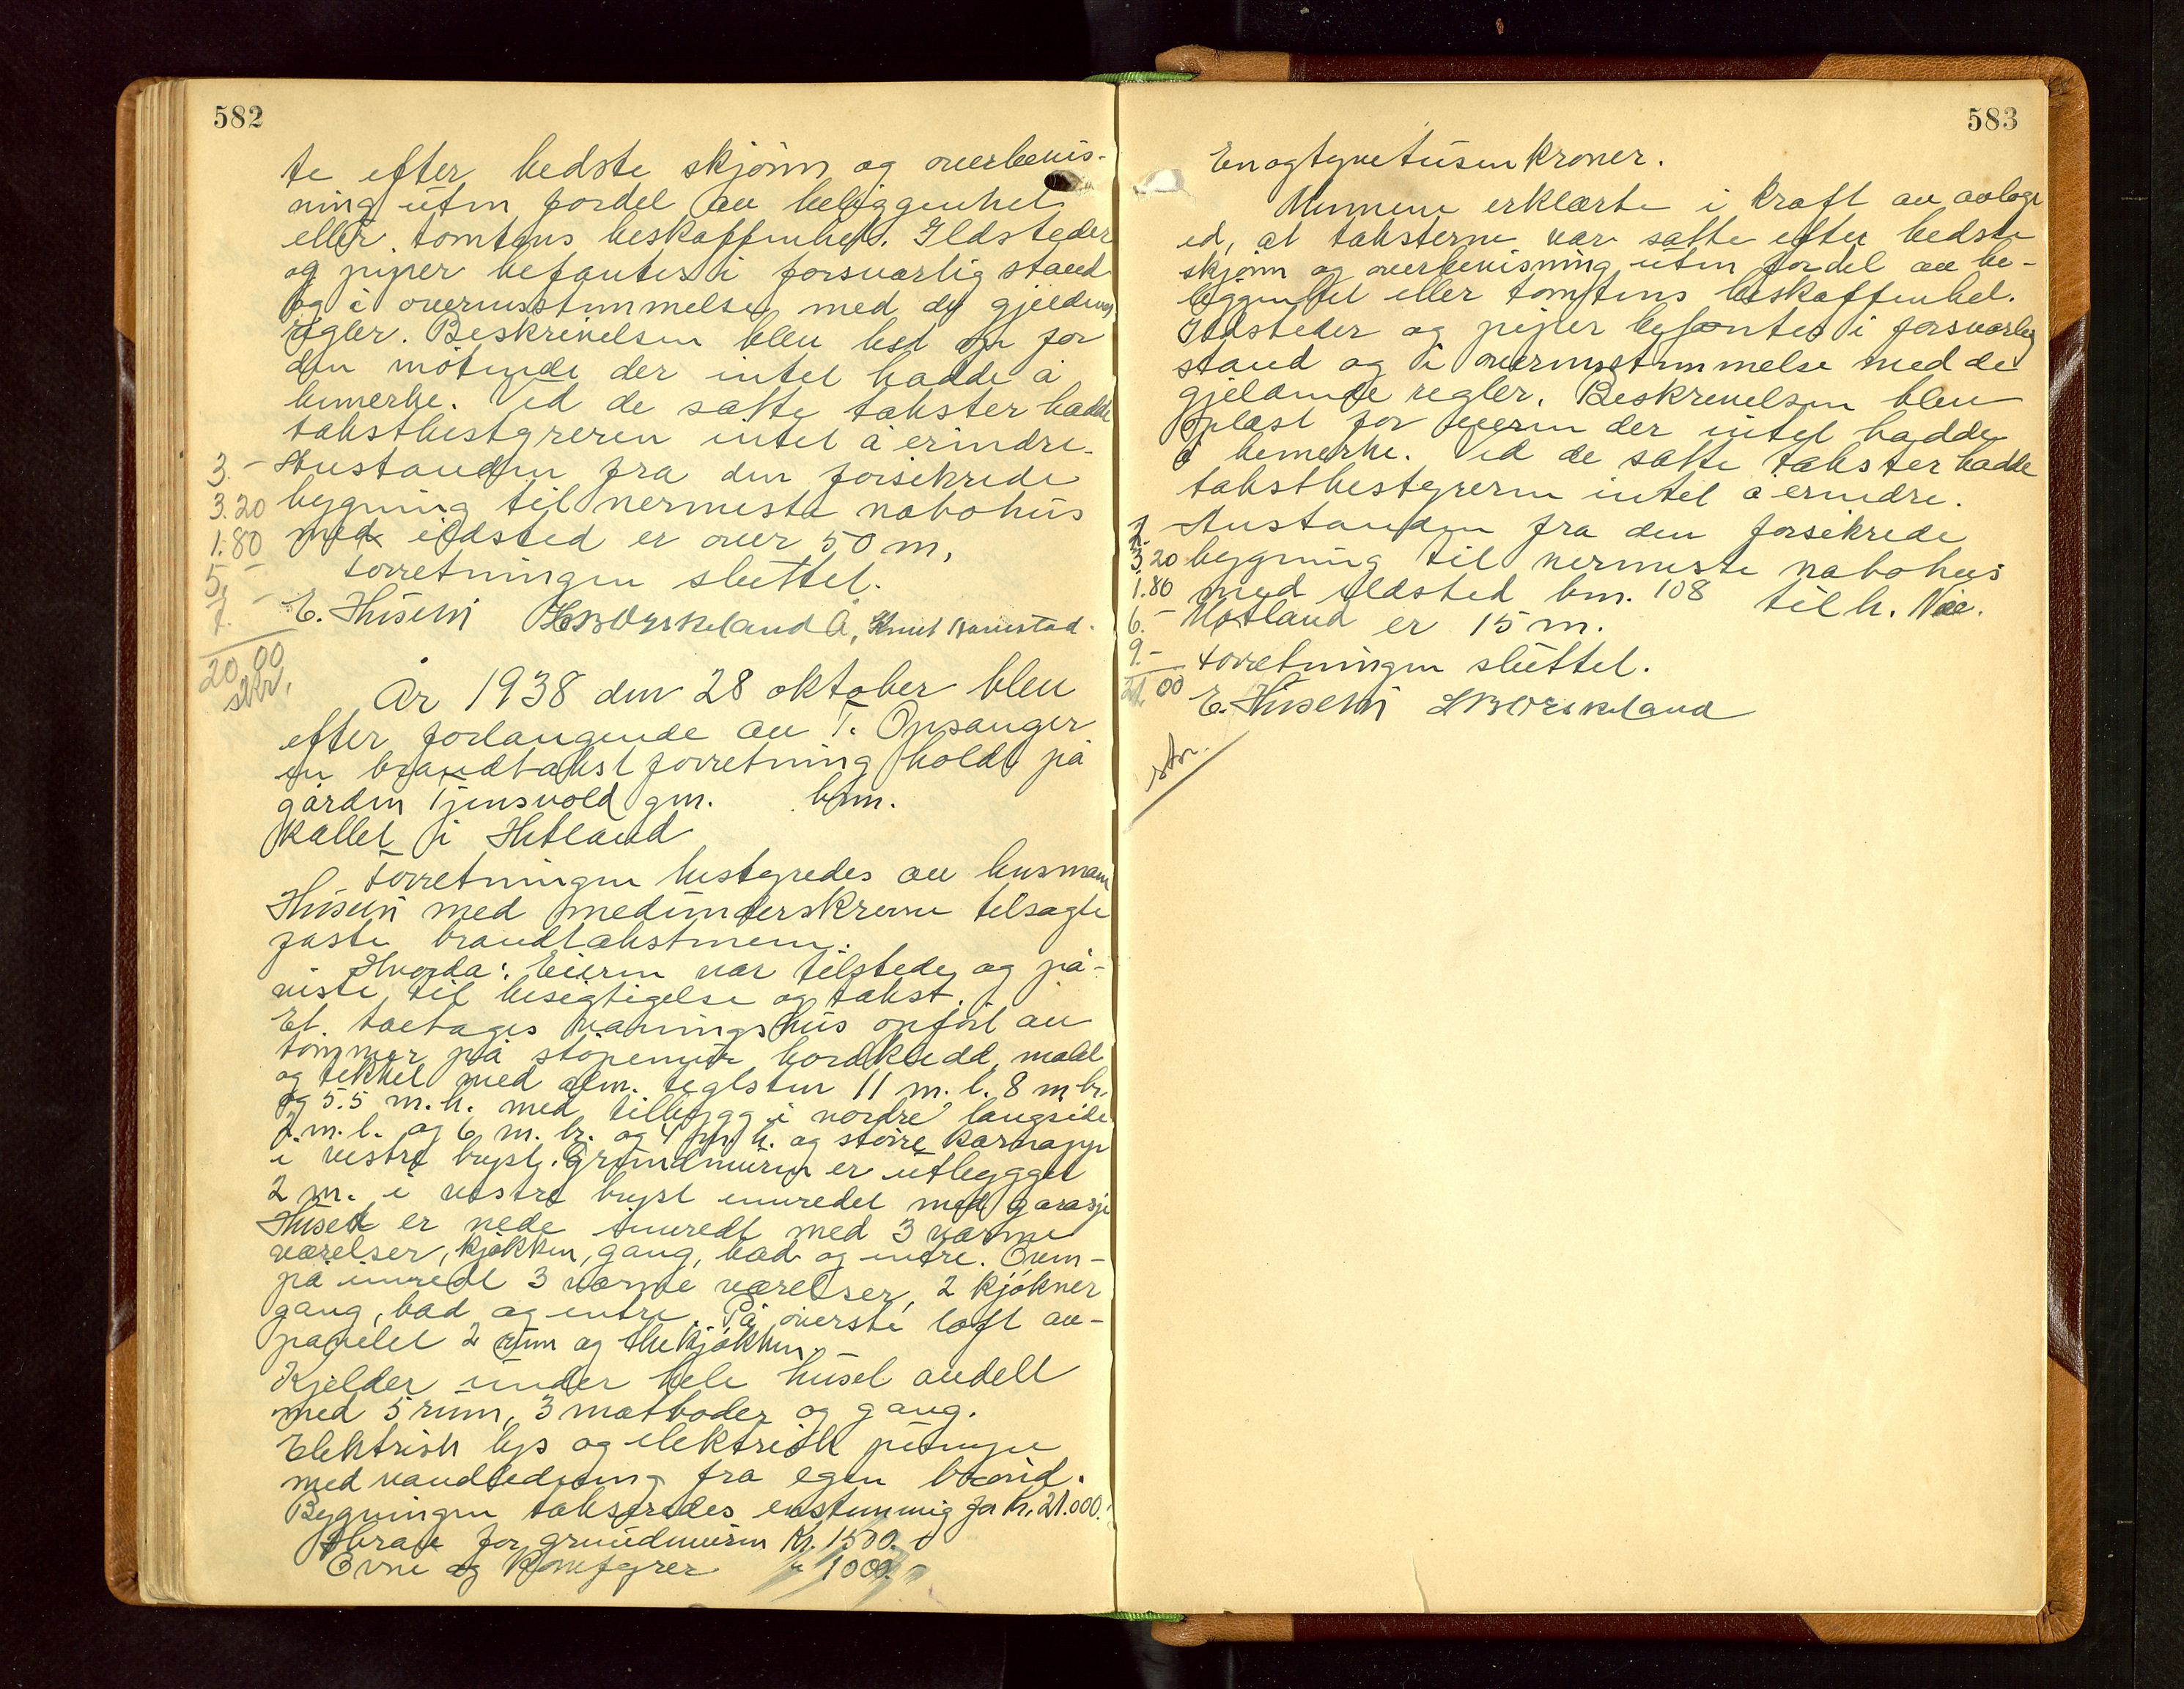 582
te efter bedste skjönn og overbevis-
ning uten fordel av beliggenhet
eller tomtens beskaffenhet. Ildsteder
og piper befantes i forsvarlig stand
og i overensstemmelse med de gjeldene
regler. Beskrivelsen blev lest op for
den mötende der intet hadde å
bemerke. Ved de satte takster hadde
takstbestyreren intet å erindre.
3.- Avstanden fra den forsikrede
3.20 bygning til nermeste nabohus
1.80 med ildsted er over 50 m.
5.- Forretningen sluttet.
7.- E. Husem
20.00
skr.
År 1938 den 28 oktober blev
efter forlangende av T. Opsanger
en brandtakst forretning holdt på
gården Tjensvold gnr. bnr.
kallet i Hetland
Forretningen bestyredes av lensmann
Husem med medunderskrevne tilsagte
faste brandtakstmenn.
Hvorda: Eieren var tilstede og på-
viste til besigtigelse og takst.
Et. toetages våningshus opfört av
tömmer på stöpemur bordkledd, malt
og tekket med alm. teglsten 11 m. l. 8 m br.
og 5.5 m. h. med tilbygg i nordre langside
2. m. l. og 6 m. br. og 4 m h. og större karnapp
i vestre bryst. Grundmuren er utbygget
2 m. i vestre bryst innredet med garasje
Huset er nede innredt med 3 varme
værelser, kjökken, gang, bad og entre. Oven-
på innredt 3 varme værelser, 2 kjökner
gang, bad og entre. På överste loft av-
panelet 2 rum og thekjökken.
Kjelder under hele huset avdelt
med 5 rum, 3 matboder og gang.
Elektrisk lys og elektrisk pumpe
med vandledning fra egen brönd.
Bygningen takseredes enstemmig for kr. 21.000.-
Herav for grundmuren kr. 1500.-
Ovne og komfyrer " 1000.-
583
Enogtyvetusen kroner.
Mennene erklærte i kraft av avlagt
ed, at taksterne var satte efter bedste
skjönn og overbevisning uten fordel av be-
liggenhet eller tomtens beskaffenhet.
Ildsteder og piper befantes i forsvarlig
stand og i overensstemmelse med de
gjeldende regler. Beskrivelsen blev
oplest for eieren der intet hadde
å bemerke. Ved de satte takster hadde
takstbestyreren intet å erindre.
Avstanden fra den forsikrede
3.20 bygning til nermeste nabohus
1.80 med ildsted bnr. 108 tilh.
6.- Motland er 15 m.
9.- Forretningen sluttet.
21.00 E. Husem
skr.